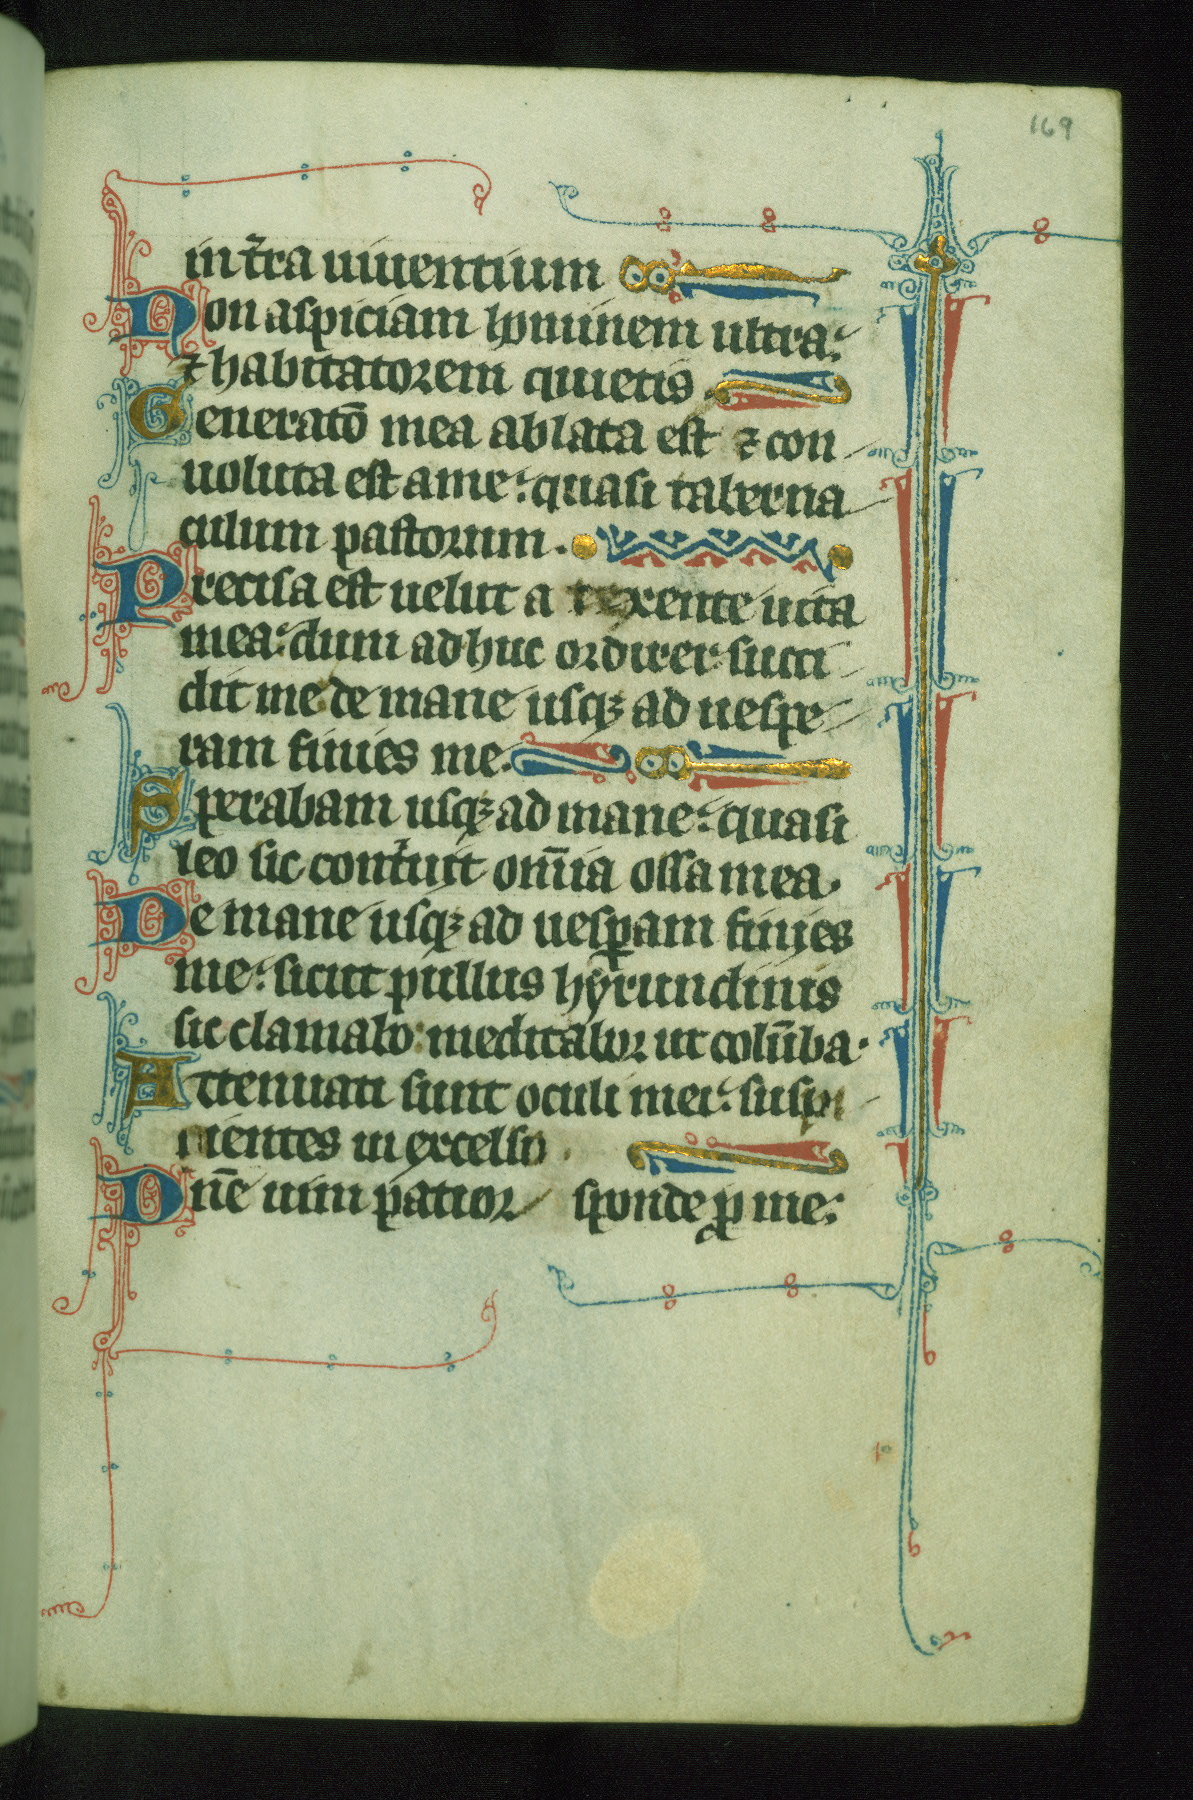 169
in t̄ra uiuentium
Non aspiciam hominem ultra:
⁊ habitatorem quietis
Generatō mea ablata est ⁊ con
uoluta est a me: quasi taberna
culum pastorum.
Precisa est uelut a texente uita
mea: dum adhuc ordirer succi
dit me de mane usqꝫ ad uespe
ram finies me.
Sperabam usqꝫ ad mane: quasi
leo sic contͥuit om̄ia ossa mea.
De mane usqꝫ ad uesꝑam finies
me: sicut pullus hyrundinis
sic clamabo: meditabor ut colūba.
Attenuati sunt oculi mei: suspi
cientes in excelso.
Dn̄e uim patior sponde ꝓ me: